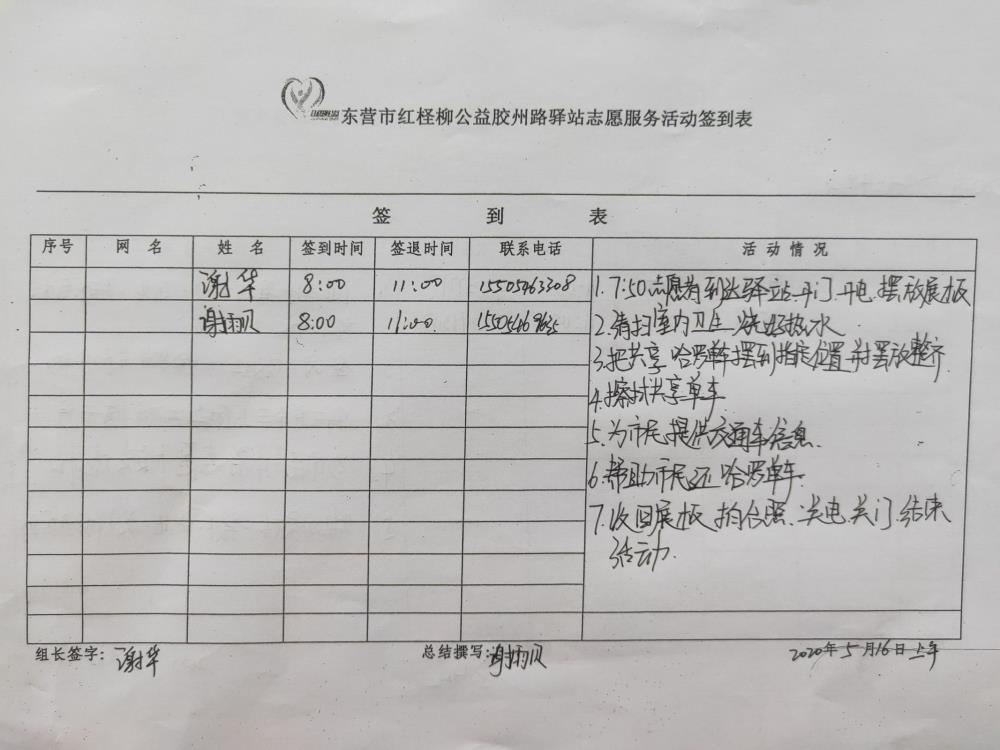 东营市红柽柳公益胶州路驿站志愿服务活动签到表
签 到 表
序号 网 名 姓 名 签到时间 签退时间 联系电话 活 动 情 况
谢华 8:00 11:00 15505463308
谢翔贝 8:00 11:00
1.7:50志愿者到达驿站.开门.开电.摆放展板
2.清扫室内卫生 烧好热水
3.把共享 哈罗单车摆到指定位置并摆放整齐.
4.擦拭共享单车
5.为市民提供交通车信息.
6.帮助市民还哈罗单车.
7.收回展板.拍合照.关电.关门.结束
活动.
组长签字：谢华 总结撰写：谢翔贝 2020年5月16日上午